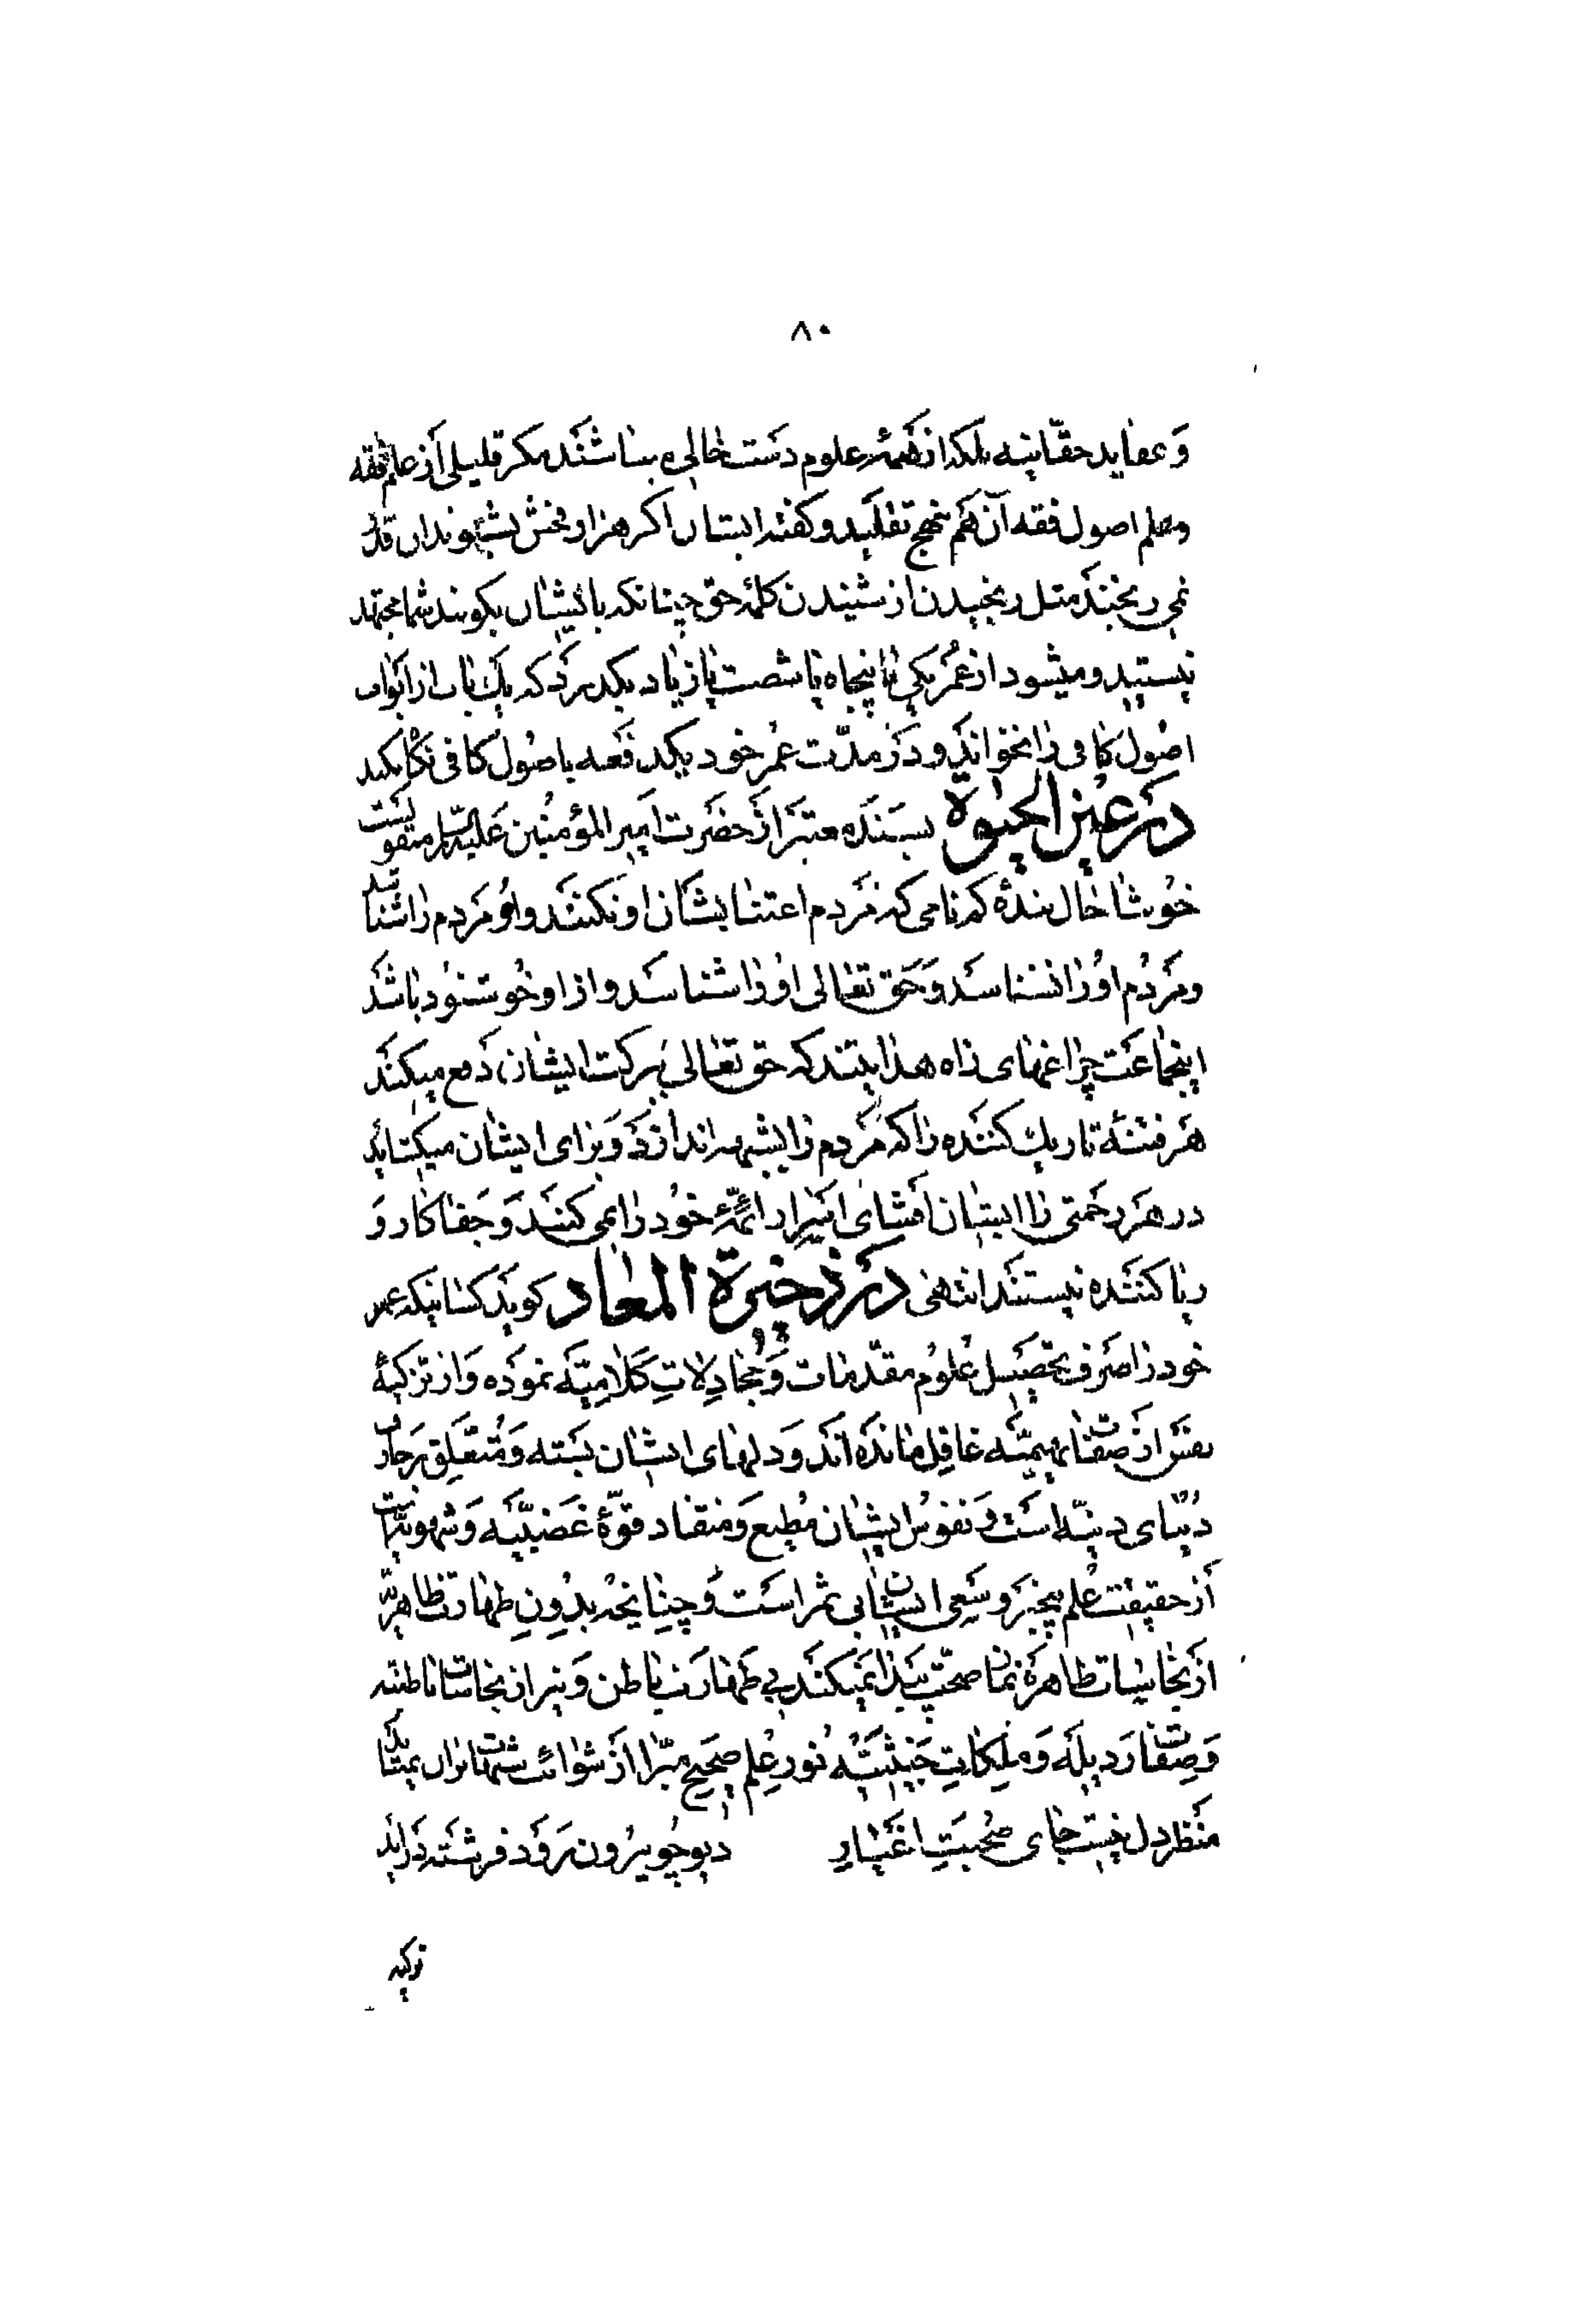 ۸۰
و عقاید حقّانیه بلکه از همهٔ علوم دست خالی میباشند مکر قلیلی از علم فقه
و علم اصول فقه آن هم بنهج تقلید و کفته ایشان اکر هزار فحش بشنوند ان قدر
نمی رنجند مثل رنجیدن از شنیدن کلمهٔ حق چنانکه بایشان بکویند شما مجتهد
نیستید و میشود از عمر یکی تا پنجاه یا شصت یا زیاد بکذرد که یک باب از ابواب
اصول کافی را نخواند و در مدّت عمر خود یکدفعه باصول کافی نکاه نکند
در عین الحیوة بسند معتبر از حضرت امیر المؤمنین علیه السلام منقولست
خوشا حال بندهٔ کم نامی که مردم اعتنا بشان او نکنند و او مردم را شناسد
و مردم او را نشناسد و حق تعالی او را شناسد و از او خوشنود باشد
اینجماعت چراغهای راه هدایتند که حق تعالی ببرکت ایشان دفع میکند
هر فتنهٔ تاریک کننده را که مردم را بشبهه اندازد و برای ایشان میکشاید
در هر رحمتی را ایشان افشای اسرار ائمّهٔ خود را نمی کنند و جفا کار و
ریا کننده نیستند انتهی در ذخیرة المعاد کوید کسانیکه عمر
خود را صرف تحصیل علوم مقدّمات و مجادلات کلامیّه نموده و از تزکیهٔ
نفس از صفات بهیمیّه غافل مانده اند و دلهای ایشان بسته و متعلق بزخارف
دنیای دنیّه است و نفوس ایشان مطیع و منقاد قوّهٔ غضبیّه و شهویّه است
از حقیقت علم بیخبر و سعی ایشان بی ثمر است و چنانچه بدون طهارت ظاهریّه
از نجاسات ظاهره نماز صحّت پیدا نمیکند بی طهارت باطن و نیز از نجاسات باطنه
و صفات ردیله و ملکات خبیثیّه نور علم صحیح مبّرا از شوائب شبهات بران نمیتابد
منظر دل نیست جای صحبت اغیار دیو چو بیرون رود فرشته دراید
تزکیه